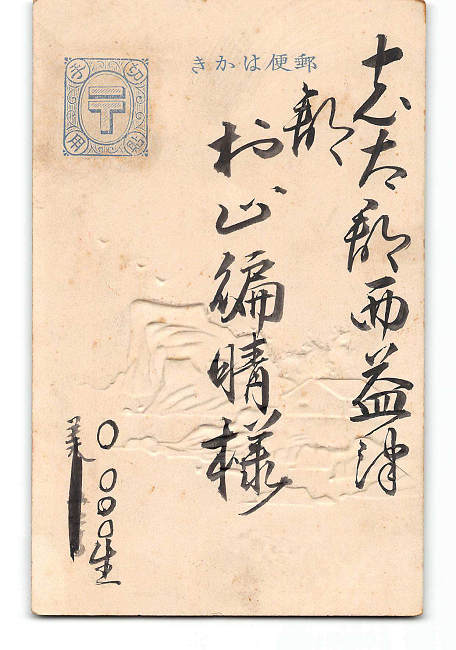 郵便はかき
切手
貼用
志太郡西益津
村山編晴様
〇〇〇〇生